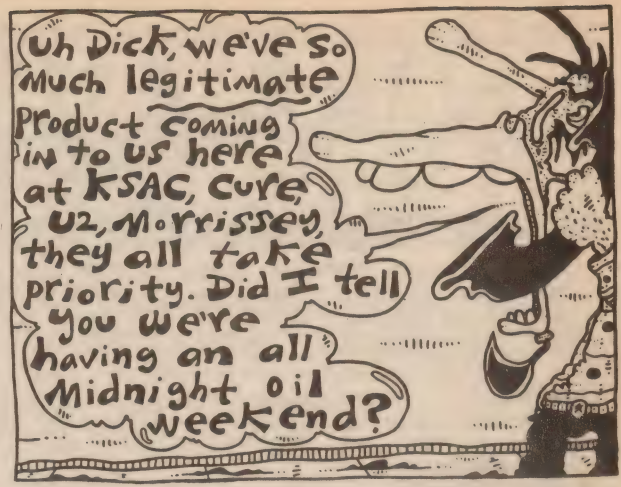 Uh Dick, we've so
much legitimate
product coming
in to us here
at KSAC, Cure,
U2, Morrissey,
they all take
priority. Did I tell
you we're
having an all
Midnight oil
weekend?